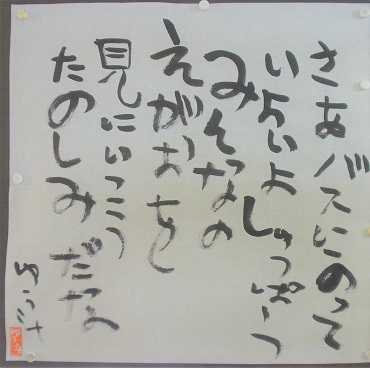 さあバスにのって
いよいよしゅっぱーつ
みんなの
えがおを
見にいこう
たのしみだな